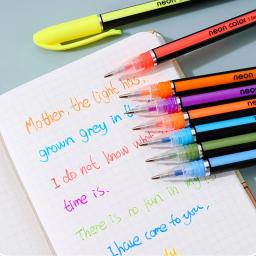 neon color
neon color
neon
neon
neon
neon
Mother, the light has
grown grey in t
I do not know wh
time is.
There is no fun in my
I have come to you,